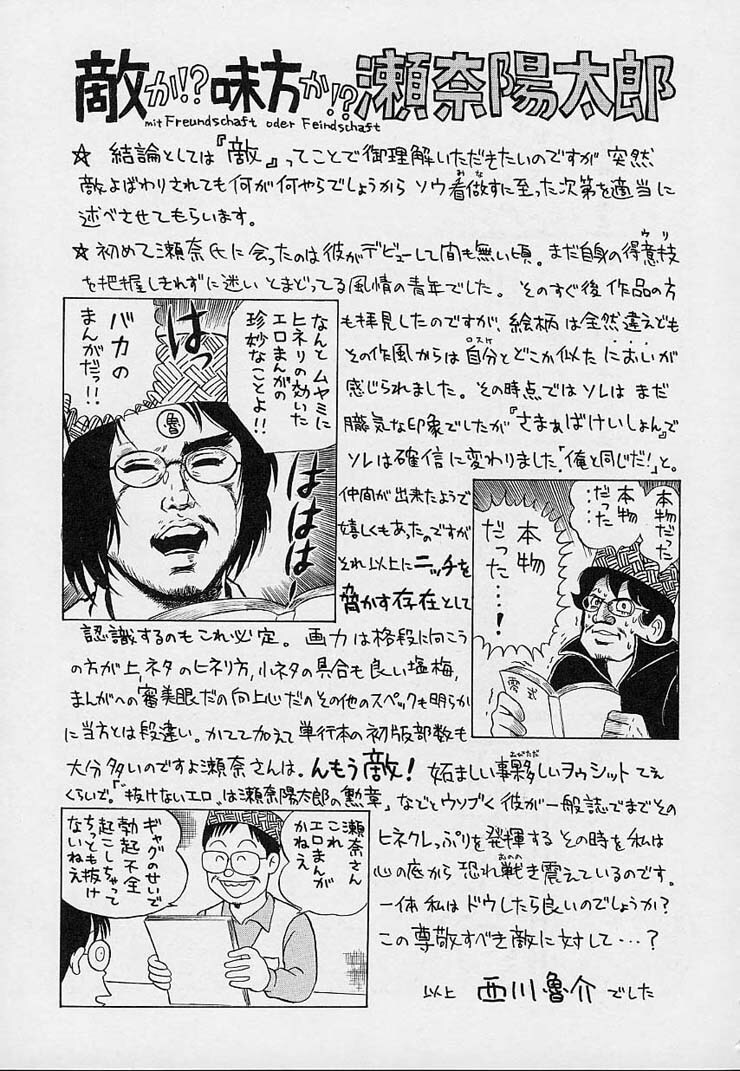 敵か!?味方か!?瀬奈陽太郎
mit Freundschaft oder Feindschaft
☆ 結論としては『敵』ってことで御理解いただきたいのですが 突然
敵よばわりされても何が何やらでしょうから ソウ看做すに至った次第を適当に
述べさせてもらいます。
☆ 初めて瀬奈氏に会ったのは彼がデビューして間も無い頃。まだ自身の得意技
を把握しきれずに迷い とまどってる風情の青年でした。そのすぐ後 作品の方
も拝見したのですが、絵柄は全然違えども
その作風からは自分とどこか似た においが
感じられました。その時点では ソレは まだ
朧気な印象でしたが『さまぁばけいしょん』で
ソレは確信に変わりました「俺と同じだ!」と。
仲間が出来たようで
嬉しくもあったのですが
それ以上にニッチを
脅かす存在として
認識するのもこれ必定。画力は格段に向こう
の方が上、ネタのヒネリ方、小ネタの具合も良い塩梅、
まんがへの審美眼だの向上心だのその他のスペックも明らか
に当方とは段違い。かてて加えて単行本の初版部数も
大分多いのですよ瀬奈さんは。んもう敵! 妬ましい事夥しいヲゥシット てえ
くらいで。「"抜けないエロ"は瀬奈陽太郎の勲章」などとウソブく彼が一般誌でまでその
ヒネクレっぷりを発揮する その時を私は
心の底から恐れ戦き震えているのです。
一体 私は ドウしたら良いのでしょうか?
この尊敬すべき敵に対して…?
以上 西川魯介 でした
なんと ムヤミに
ヒネリの効いた
エロまんがの
珍妙なことよ!!
はっ
バカの
まんがだっ!!
ははは
魯
本物だった
本物だった……
本物
だった…!
零式
瀬奈さん
これ
エロまんが
かねえ
ギャグのせいで
勃起不全
起こしちゃって
ちっとも抜け
ないねえ